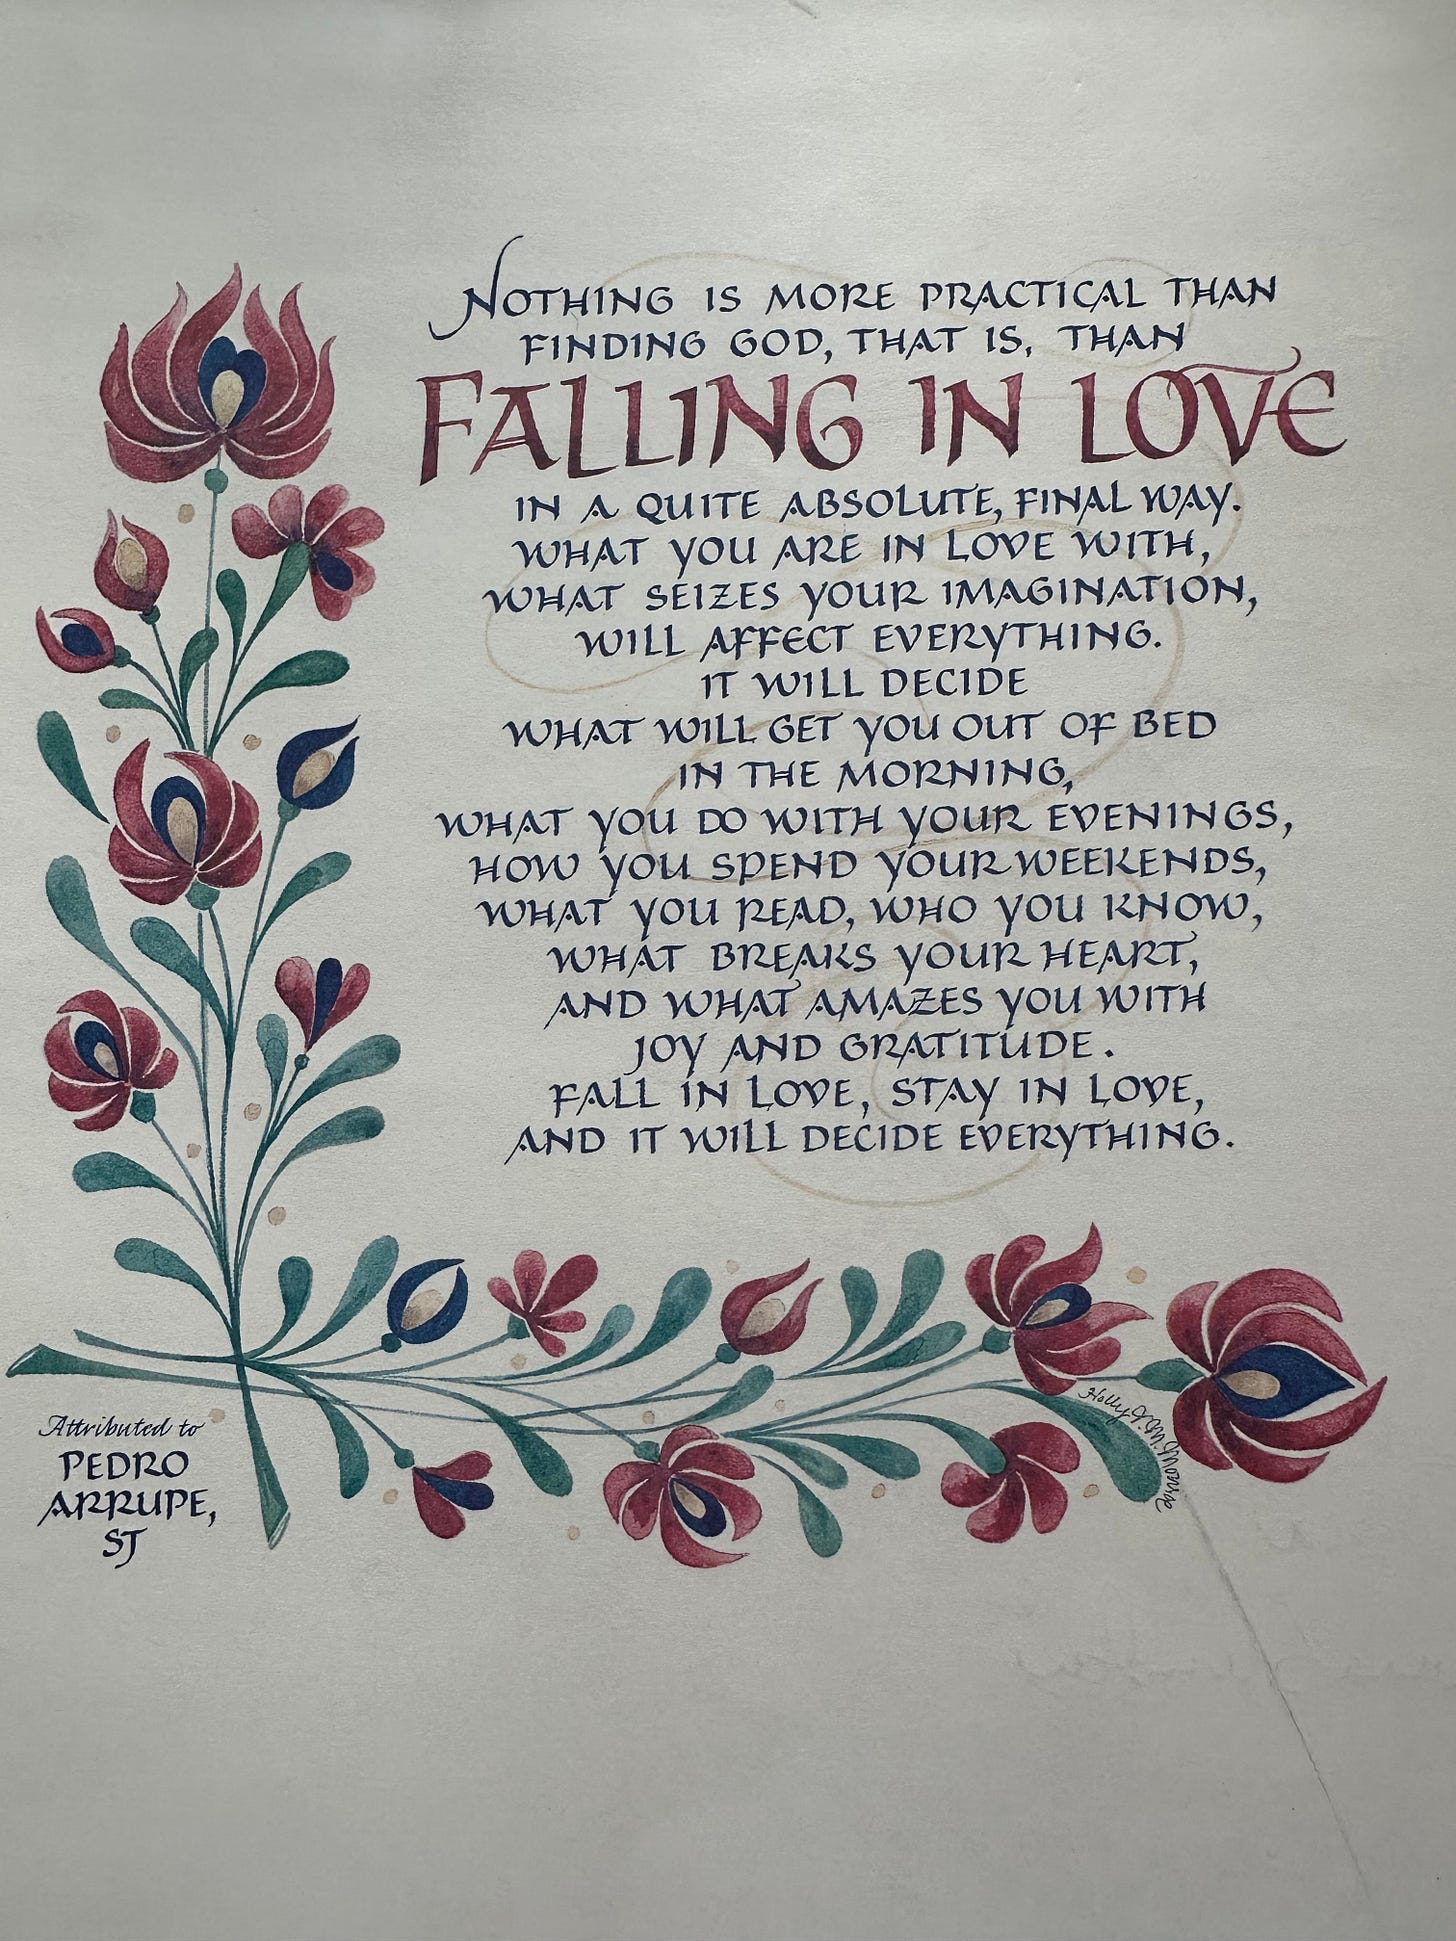 NOTHING IS MORE PRACTICAL THAN
FINDING GOD, THAT IS, THAN
FALLING IN LOVE
IN A QUITE ABSOLUTE, FINAL WAY.
WHAT YOU ARE IN LOVE WITH,
WHAT SEIZES YOUR IMAGINATION,
WILL AFFECT EVERYTHING.
IT WILL DECIDE
WHAT WILL GET YOU OUT OF BED
IN THE MORNING,
WHAT YOU DO WITH YOUR EVENINGS,
HOW YOU SPEND YOUR WEEKENDS,
WHAT YOU READ, WHO YOU KNOW,
WHAT BREAKS YOUR HEART,
AND WHAT AMAZES YOU WITH
JOY AND GRATITUDE.
FALL IN LOVE, STAY IN LOVE,
AND IT WILL DECIDE EVERYTHING.
Attributed to
PEDRO
ARRUPE,
SJ
Holly Monroe